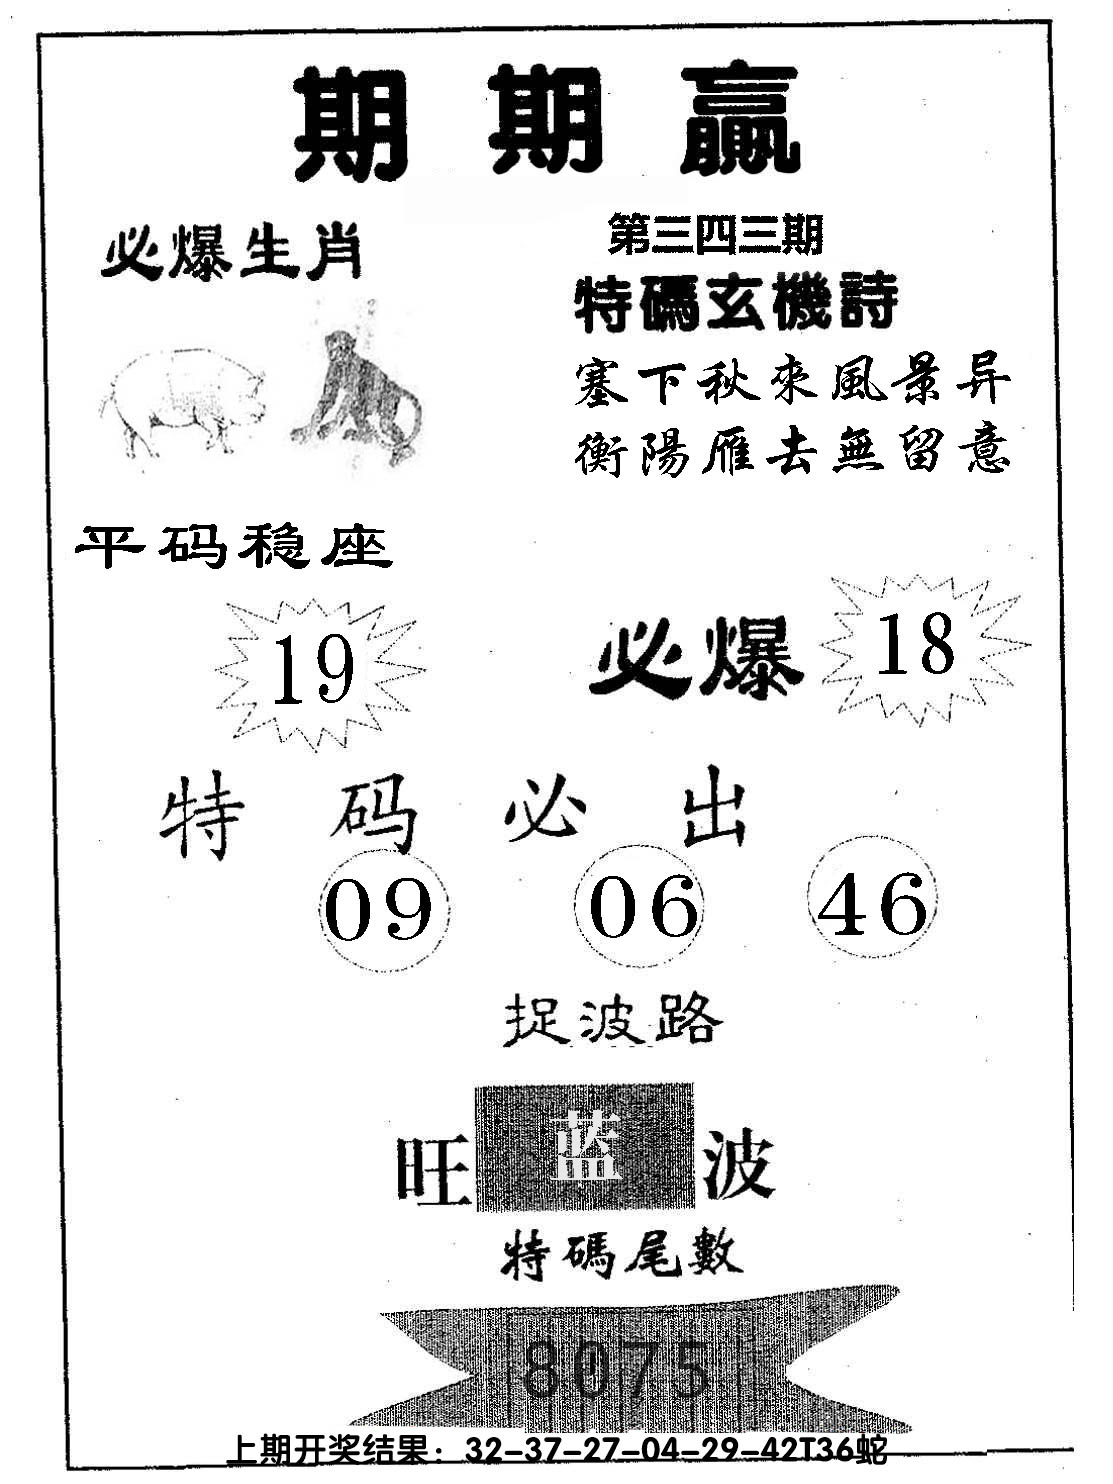 期期赢
必爆生肖
第三四三期
特碼玄機詩
塞下秋來風景异
衡陽雁去無留意
平码稳座
19
必爆
18
特码必出
09 06 46
捉波路
旺蓝波
特碼尾數
8075
上期开奖结果：32-37-27-04-29-42T36蛇